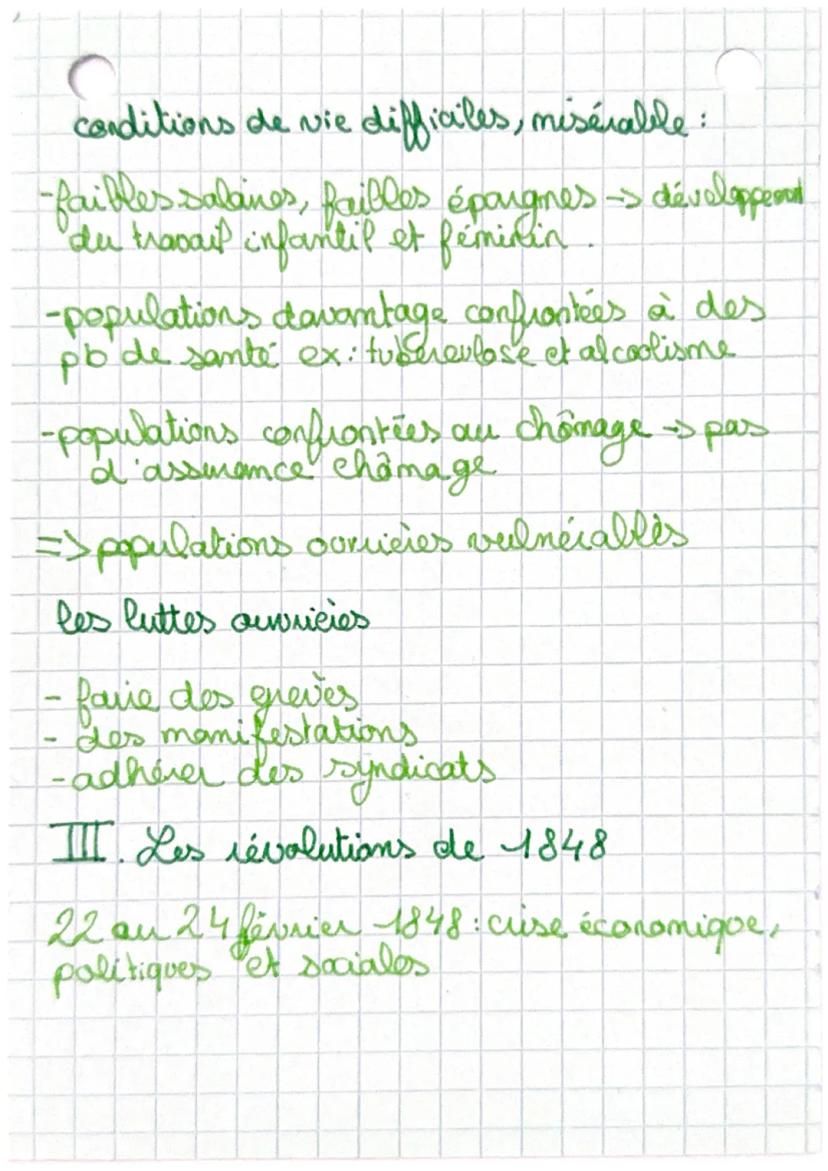 conditions de vie difficiles, misérable :
-faibles salaires, faibles épargnes -> développement
du travail infantil et féminin .
-populations davantage confrontées à des
pb de santé ex : tuberculose et alcoolisme
-populations confrontées au chômage -> pas
d'assurance chômage
=> populations ouvrières vulnérables
les luttes ouvrières
- faire des grèves
- des manifestations
-adhérer des syndicats
III. Les révolutions de 1848
22 au 24 février 1848 : crise économique,
politiques et sociales